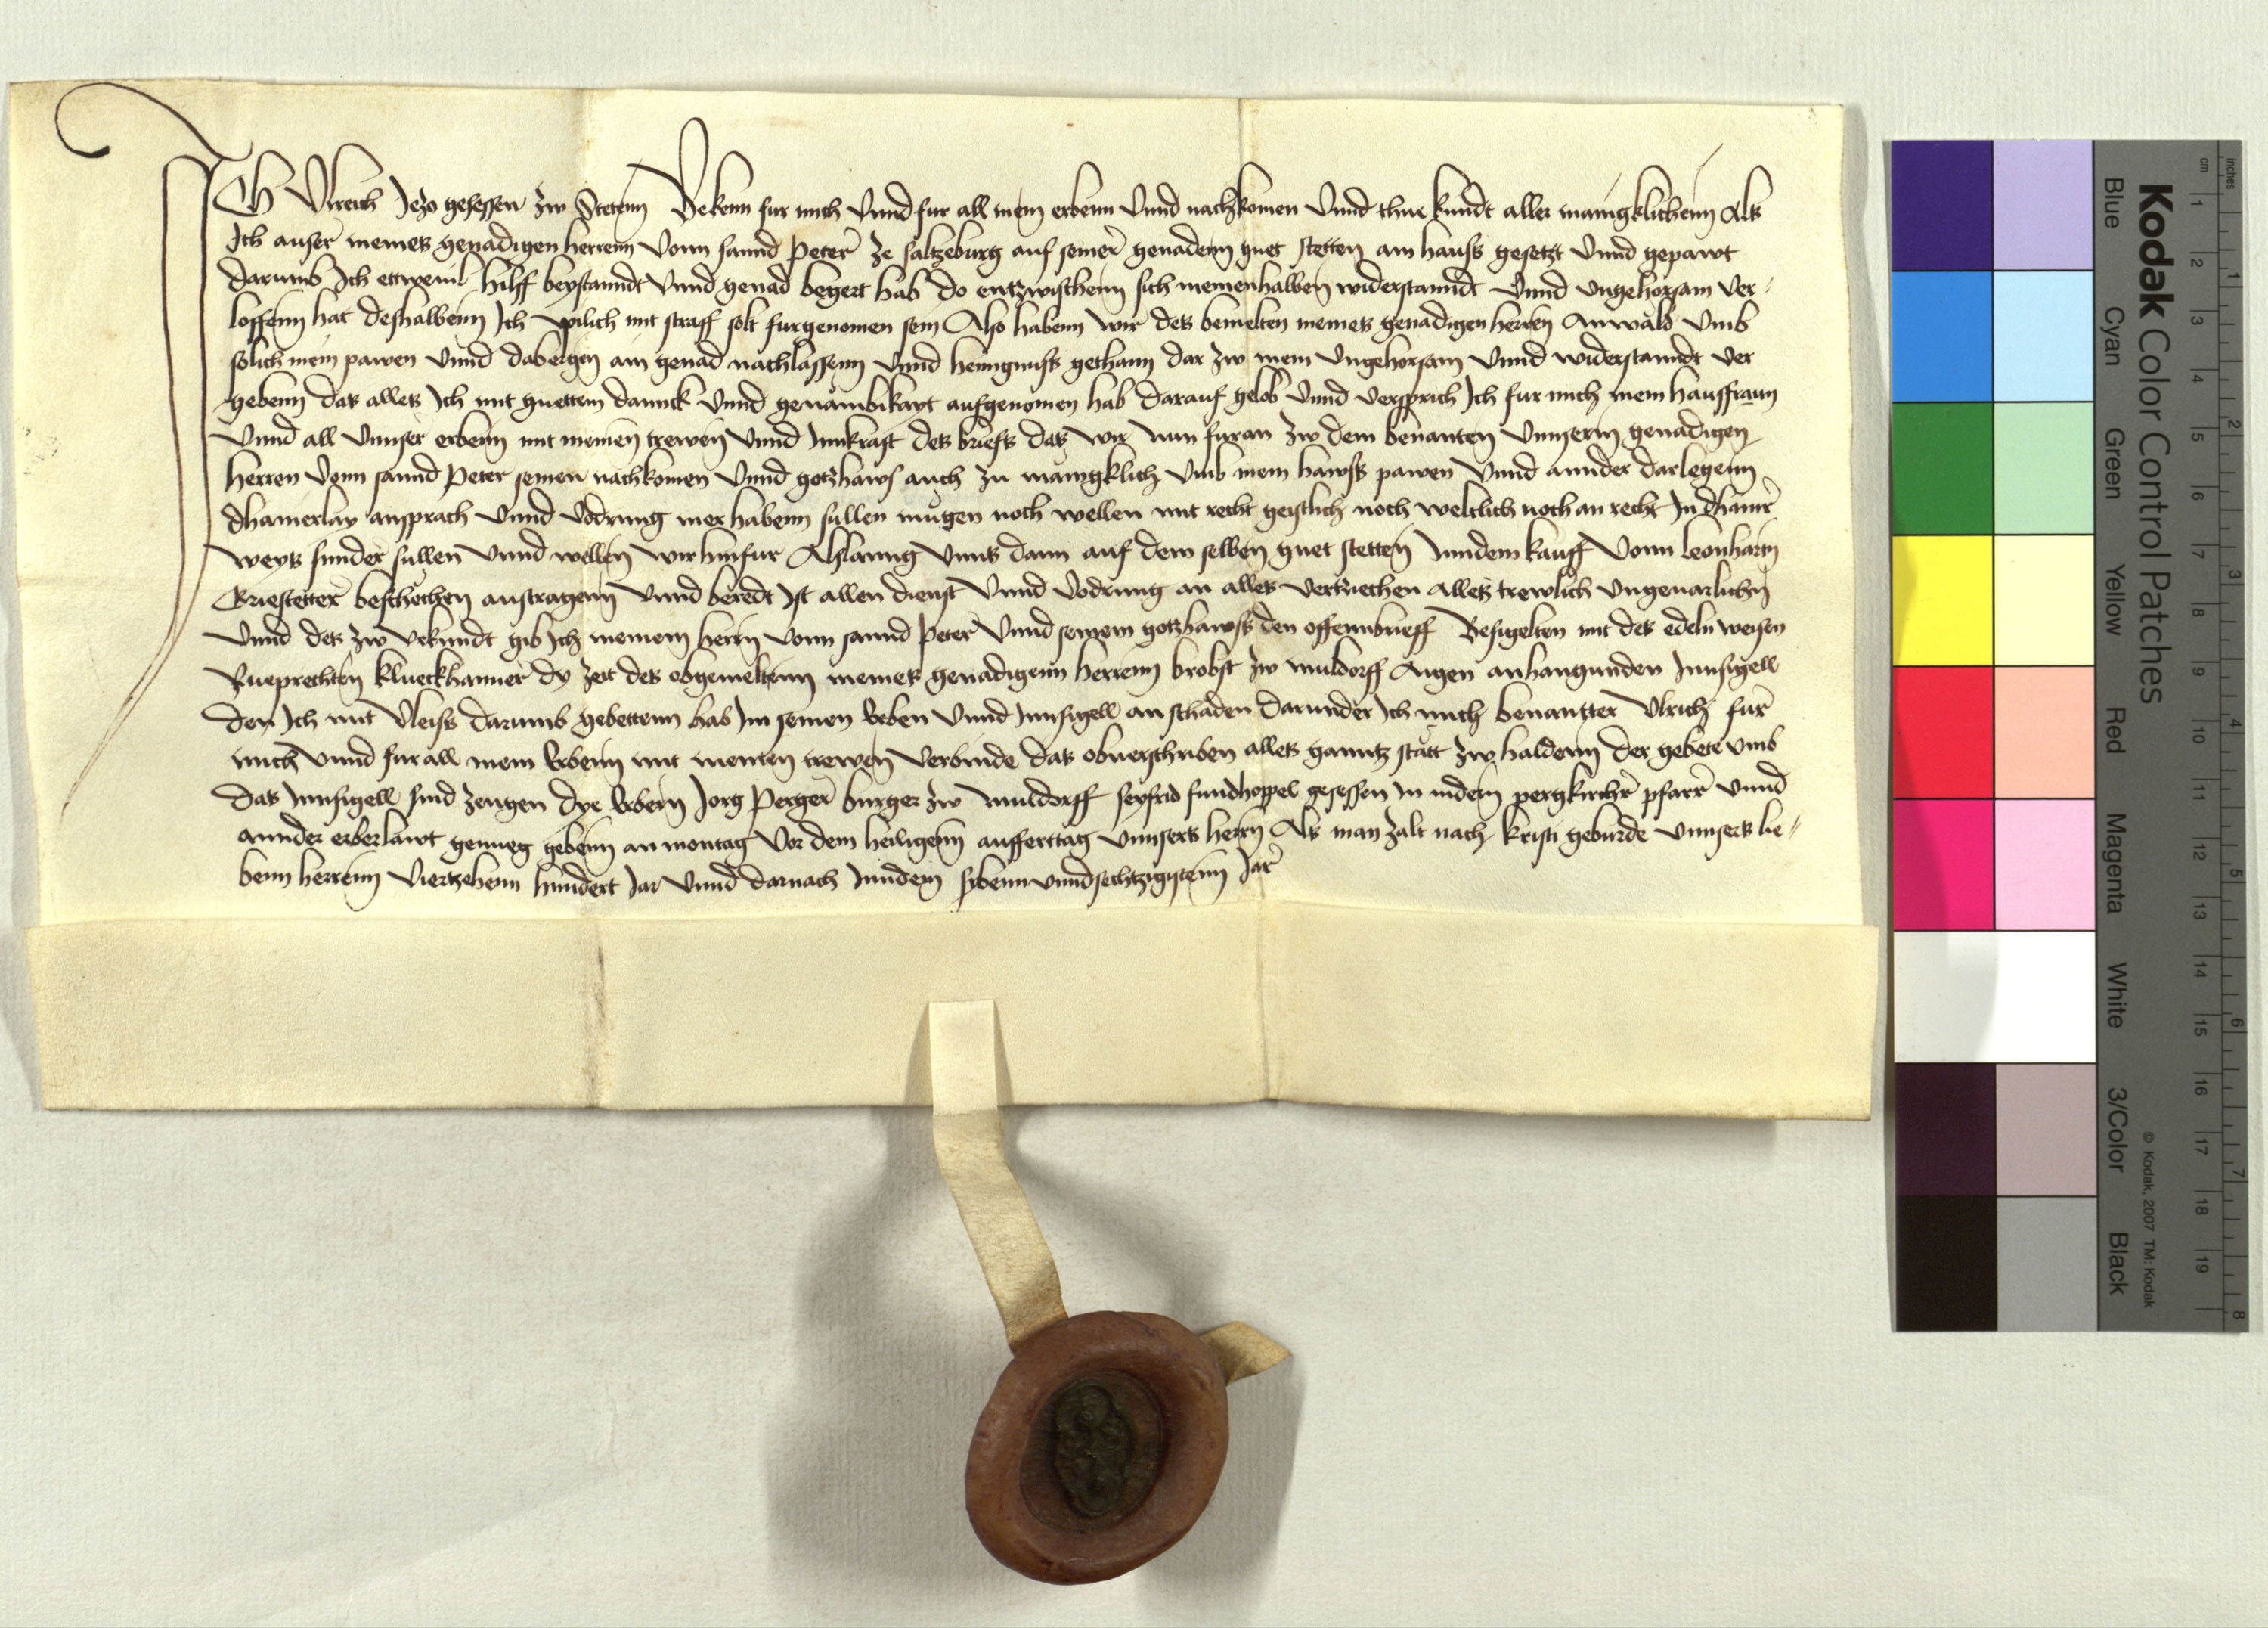 Ich Ulreich Jezo gesessen zw Stetenn Bekenn fur mich Vnnd fur all mein erbenn Vnnd nachkomen Vnnd thue kundt aller manigklichenn Als
Ich auser meines genadigen herrenn Vonn sannd Peter ze saltzeburg auf seiner genadenn guet stetten am hauss gesetzt Vnnd gepawt
darumb Ich ettweuil hilff beystanndt Vnnd genad begert hab do entzwischenn sich meinenhalben widerstanndt Vnnd Vngehorsam Ver-
loffenn hat deshalbenn Ich pilich mit straff solt furgenomen sein Also habenn wir des bemelten meines genadigen herren Anwald Vmb
solich mein pawen Vnnd dabergen ain genad nachlassenn Vnnd henngnuss gethann dar zw mein Vngehorsam Vnnd widerstanndt Ver
gebenn das alles Ich mit guettem dannck Vnnd aufgenomen hab darauf gelob Vnnd Versprich Ich fur mich mein hausfraun
Vnnd all Vnnser erbenn mit meinen trewen Vnnd Innkraft des briefs das wir nun furan zw dem benanten Vnnserm genadigen
herren Vonn sannd Peter seinen nachkomen Vnnd gotzhaws auch zu manigklich Vmb mein hawss pawen Vnnd annder darlegenn
dhainerlay ansprach Vnnd Vodrung mer habenn sullen mugen noch wellen mit recht geistlich noch weltlich noch an recht In dhainer
weys sunder sullen Vnnd wellen wir hinfur Alslanng Vnns dann auf dem selben guet stetten Inndem kauff Vonn leonhartn
Griestetter beschechen austragenn Vnnd beredt Ist allen dienst Vnnd Vodrung an alles Vertziechen Alles trewlich Vngeuarlichn
Vnnd des zw Vrkundt gib Ich meinem herrn Vonn sannd Peter Vnnd seinem gotzhawss den offennbrieff Besigelten mit des edeln weisen
Rueprechten kluegkhaimer dy zeit des obgemeltenn meines genadigenn herrenn brobst zw muldorff Aigen anhangunden Innsigell
den Ich mit Vleiss darumb gebettenn hab Im seinen Erben Vnnd Innsigell an schaden darunder Ich mich benantter Vlrich fur
mich Vnnd fur all mein Erbenn mit meinen trewen Verbinde das obuerschriben alles ganntz statt zw haldenn der gebete Vmb
das Innsigell sind zeugen dye Erbern Jorg Perger burger zw Muldorff seyfrid sundhoppel gesessen In pergkircher pfarr Vnnd
annder erberlawt genueg gebenn an montag Vor dem heiligenn aufferttag Vnnsers herrn Als man zalt nach kristi geburde Vnnsers lie-
benn herrenn Viertzehenn hundert Jar Vnnd darnach Inndem sybennvnndsechtzigistenn Jar
Kodak Color Control Patches
Blue Cyan Green Yellow Red Magenta White 3/Color Black
© Kodak, 2007 TM: Kodak
cm 1 2 3 4 5 6 7 8 9 10 11 12 13 14 15 16 17 18 19
inches 1 2 3 4 5 6 7 8